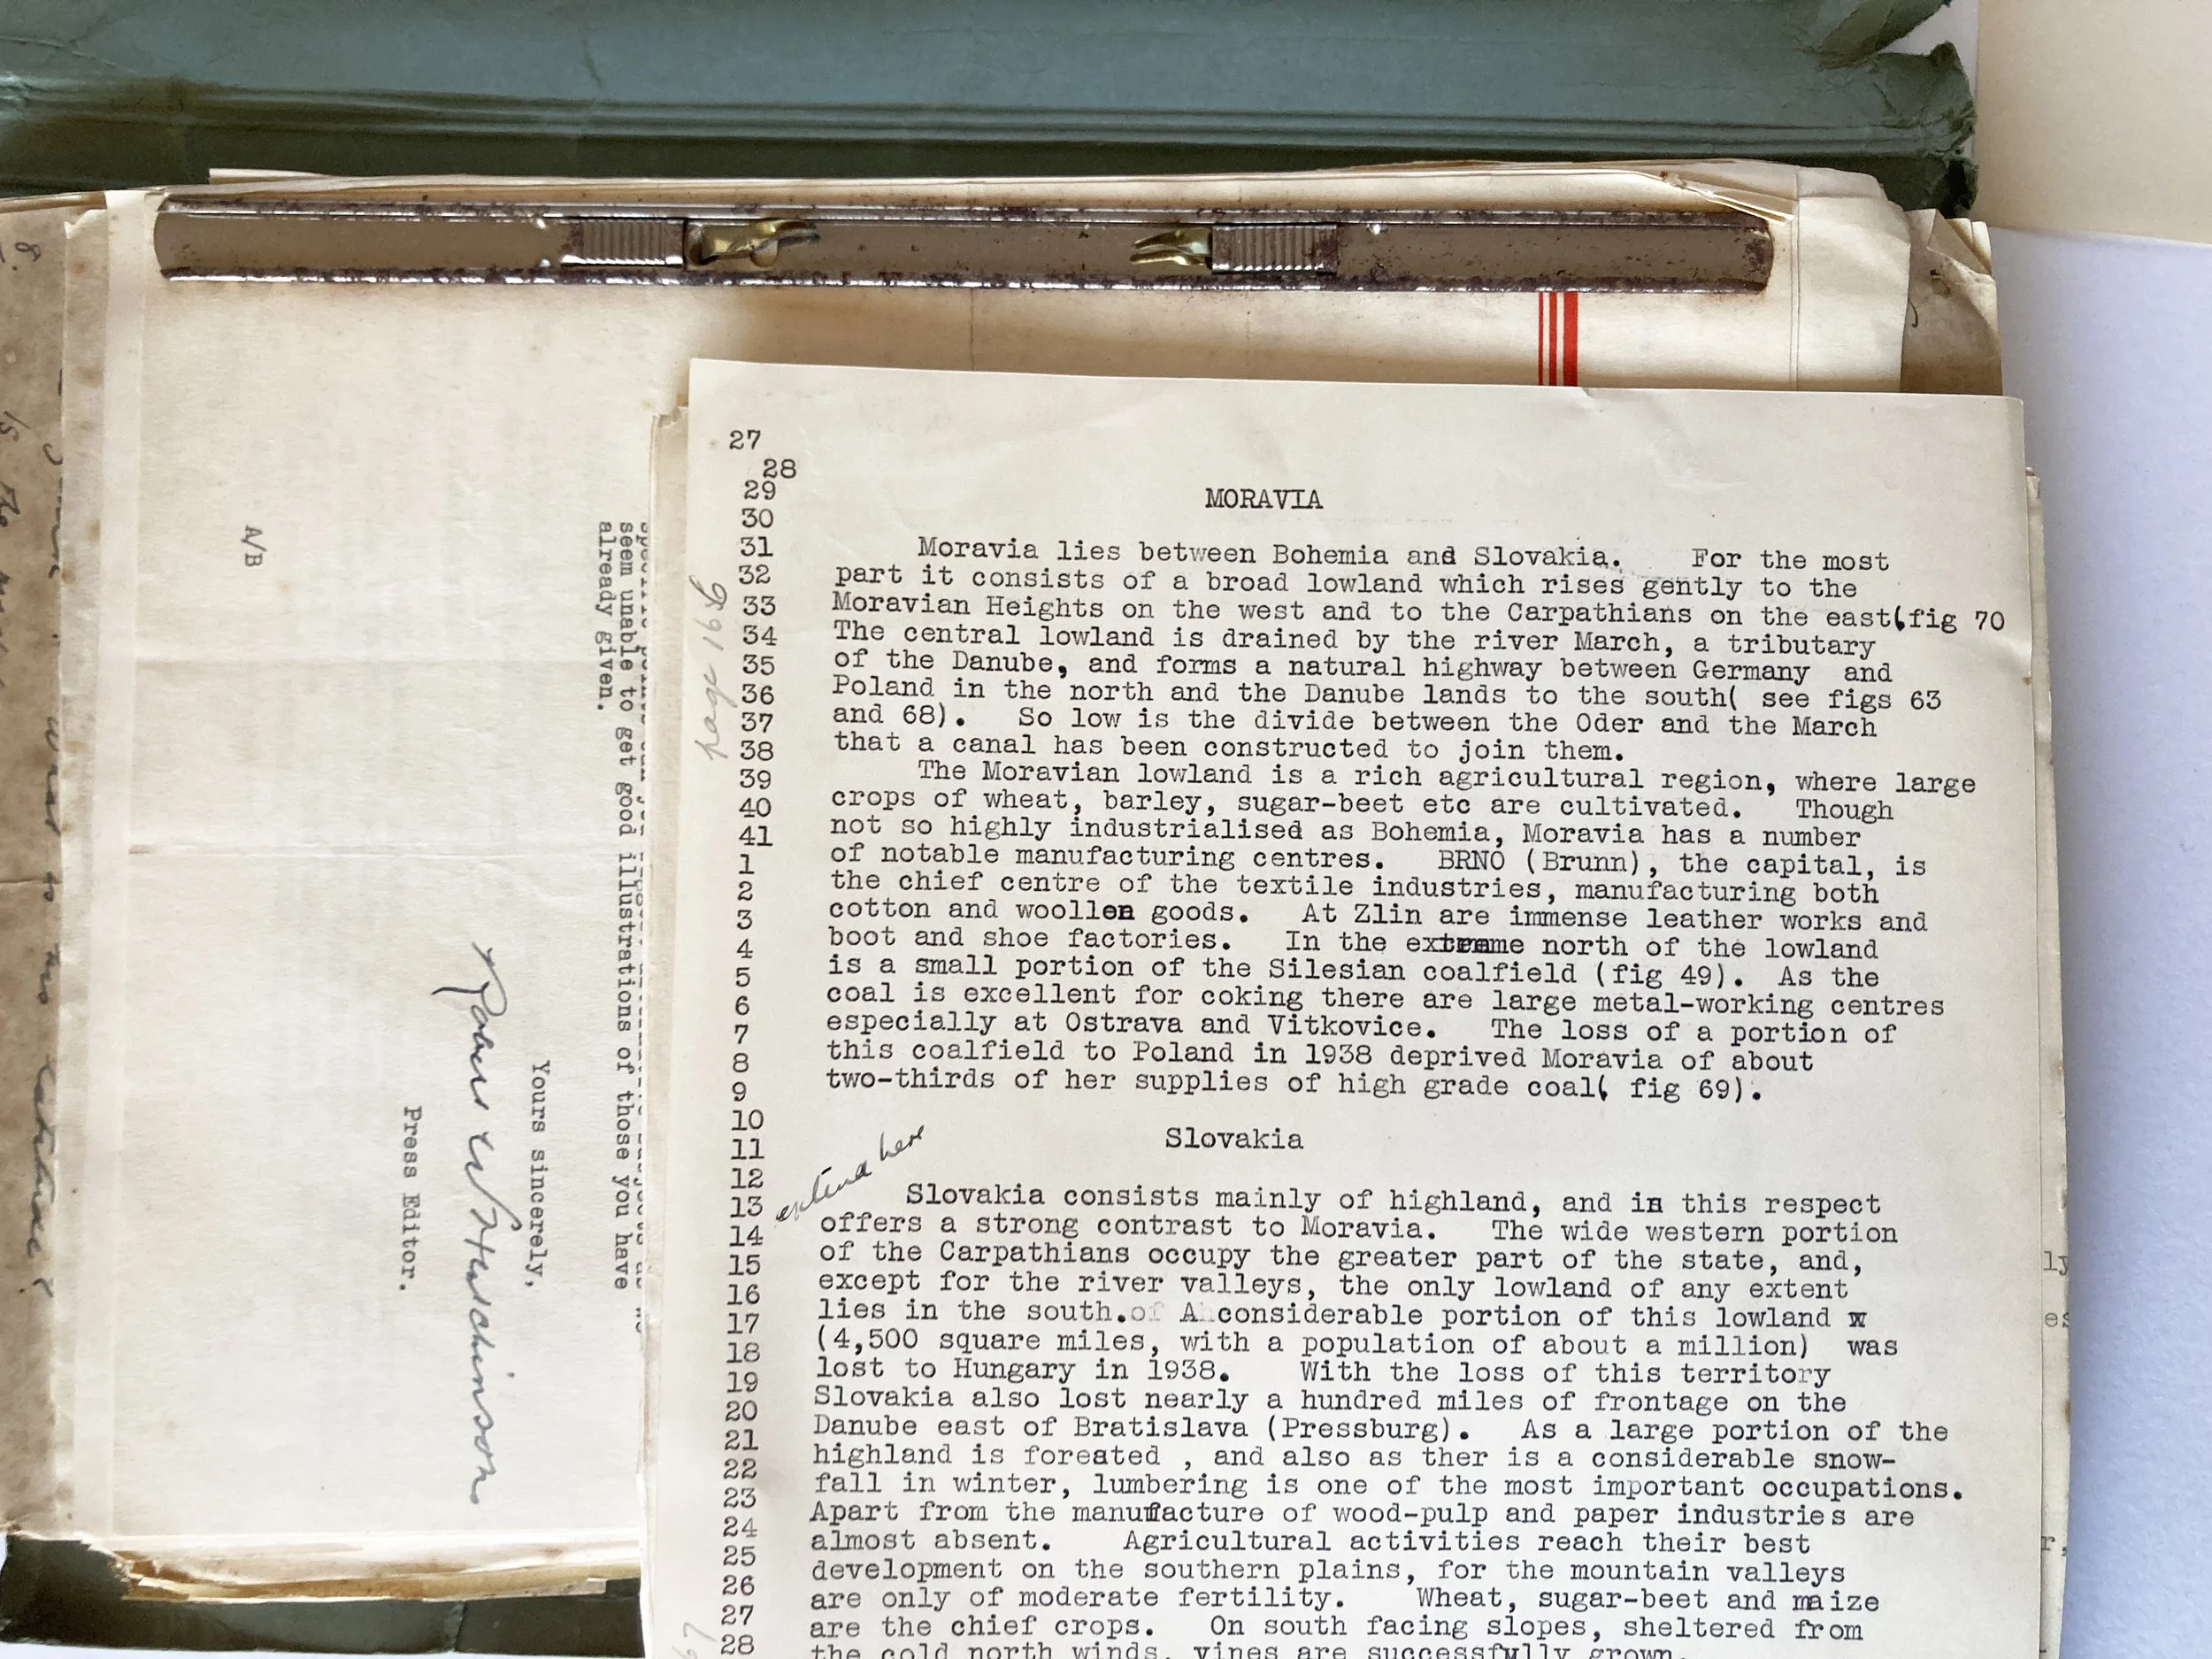 27
28
29 MORAVIA
30
31 Moravia lies between Bohemia and Slovakia. For the most
32 part it consists of a broad lowland which rises gently to the
33 Moravian Heights on the west and to the Carpathians on the east(fig 70
34 The central lowland is drained by the river March, a tributary
35 of the Danube, and forms a natural highway between Germany and
36 Poland in the north and the Danube lands to the south( see figs 63
37 and 68). So low is the divide between the Oder and the March
38 that a canal has been constructed to join them.
39 The Moravian lowland is a rich agricultural region, where large
40 crops of wheat, barley, sugar-beet etc are cultivated. Though
41 not so highly industrialised as Bohemia, Moravia has a number
1 of notable manufacturing centres. BRNO (Brunn), the capital, is
2 the chief centre of the textile industries, manufacturing both
3 cotton and woollen goods. At Zlin are immense leather works and
4 boot and shoe factories. In the extreme north of the lowland
5 is a small portion of the Silesian coalfield (fig 49). As the
6 coal is excellent for coking there are large metal-working centres
7 especially at Ostrava and Vitkovice. The loss of a portion of
8 this coalfield to Poland in 1938 deprived Moravia of about
9 two-thirds of her supplies of high grade coal( fig 69).
10
11 Slovakia
12
13 Slovakia consists mainly of highland, and in this respect
14 offers a strong contrast to Moravia. The wide western portion
15 of the Carpathians occupy the greater part of the state, and,
16 except for the river valleys, the only lowland of any extent
17 lies in the south.of A considerable portion of this lowland x
18 (4,500 square miles, with a population of about a million) was
19 lost to Hungary in 1938. With the loss of this territory
20 Slovakia also lost nearly a hundred miles of frontage on the
21 Danube east of Bratislava (Pressburg). As a large portion of the
22 highland is foreated , and also as ther is a considerable snow-
23 fall in winter, lumbering is one of the most important occupations.
24 Apart from the manufacture of wood-pulp and paper industries are
25 almost absent. Agricultural activities reach their best
26 development on the southern plains, for the mountain valleys
27 are only of moderate fertility. Wheat, sugar-beet and maize
28 are the chief crops. On south facing slopes, sheltered from
the cold north winds, vines are successfully grown.
page 166
here
67
seem unable to get good illustrations of those you have
already given.
Yours sincerely,
Robert W Hutchinson
Press Editor.
A/B
8.
ly
es
r,